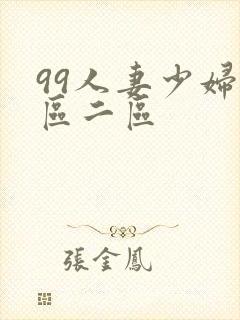 99人妻少婦
區二區
張金鳳